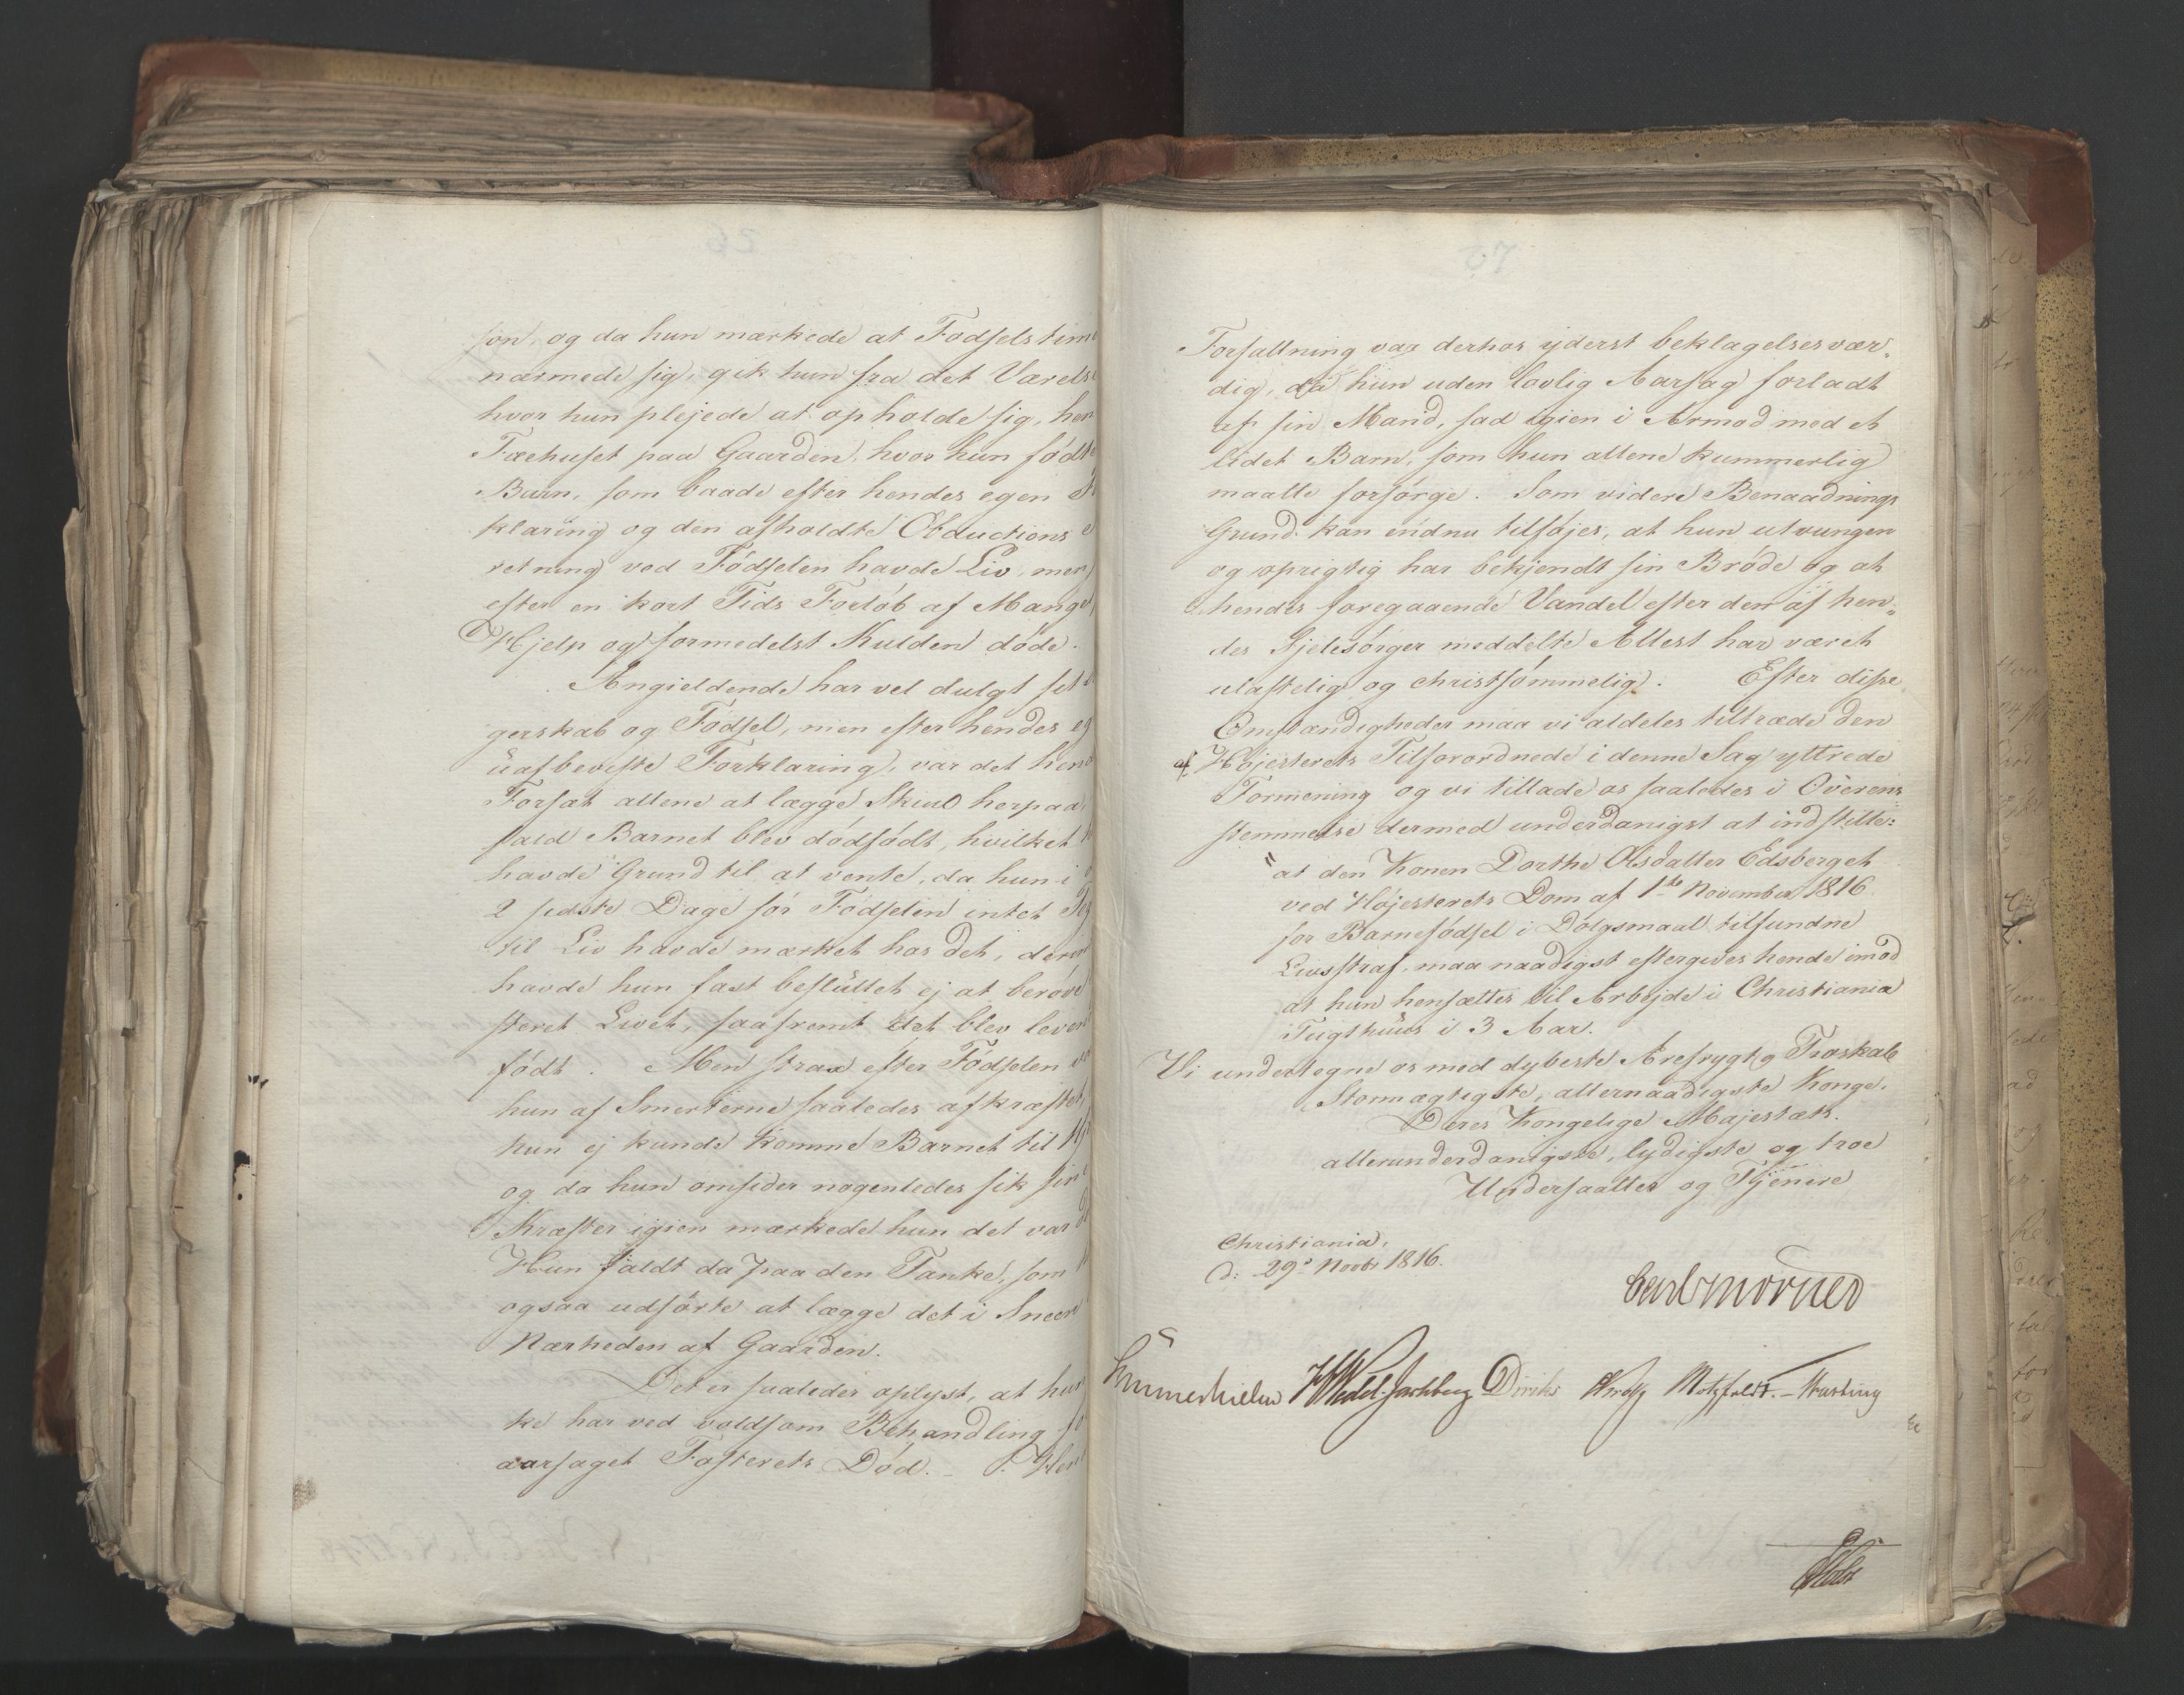 son, og da hun mærkede at Fødselstime
nærmede sig, gik hun fra det Værelse
hvor hun plejede at opholde sig, hen
Fæehuset paa Gaarden, hvor hun fødte
Barn, som baade efter hendes egen
klaring og den afholdte Obductions
retning ved Fødselen havde Liv, men
efter en kort Tids Forløb af Mangel
Hjelp og formedelst Kulden døde.
Angieldende har vel dulgt sit
gerskab og Fødsel, men efter hendes eg
uafbeviste Forklaring, var det hen
Forsæt allene at lægge Skiul herpaa
fald Barnet blev dødfødt, hvilket
havde Grund til at vente, da hun i
2 sidste Dage før Fødselen intet Teg
til Liv havde mærket hos det, derim
havde hun fast besluttet ej at berøve
steret Livet, saafremt det blev leven
født. Men strax efter Fødselen
hun af Smerterne saaledes afkræftet,
hun ej kunde komme Barnet til Hje
og da hun omsider nogenledes fik sine
Kræfter igien mærkede hun det var
Hun faldt da paa den Tanke, som
ogsaa udførte at lægge det i Sneen
Nærheden af Gaarden.
Det er saaledes oplyst, at hun
ke har ved voldsom Behandling fo
aarsaget Fosterets Død. Hen
Forfattning var derhos yderst beklagelsesvær-
dig, da hun uden lovlig Aarsag forladt
af sin Mand, sad igien i Armod med et
lidet Barn, som hun allene kummerlig
maatte forsørge. Som videre Benaadnings
Grund kan endnu tilføjes, at hun utvungen
og oprigtig har bekjendt sin Brøde og at
hendes foregaaende Vandel efter den af hen-
des Sjelesørger meddelte Attest har været
ulastelig og christsømmelig. Efter disse
Omstændigheder maa vi aldeles tiltræde den
af Højesterets Tilforordnede i denne Sag yttrede
Formening og vi tillade os saaledes i Overens
stemmelse dermed underdanigst at indstille:
"at den Konen Dorthe Olsdatter Edsberget
ved Højesterets Dom af 1ste November 1816
for Barnefødsel i Dølgsmaal tilfundne
Livsstraf, maa naadigst eftergives hende imod
at hun hensættes til Arbejde i Christiania
Tugthuus i 3 Aar.
Vi undertegne os med dybeste Ærefrygt og Troskab
Stormægtigste, allernaadigste Konge.
Deres Kongelige Majestæts.
allerunderdanigste, lydigste og troe
Undersaatter og Tjenere
Christiania,
d: 29de Novbr 1816.
Carl Mörner
Sommerhielm HWedel-Jarlsberg Diriks Krohg Motzfeldt.
Holst